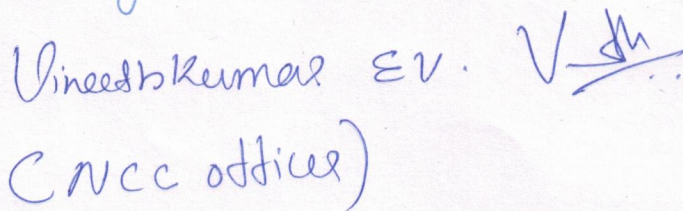 Vineethkumar E V.
(NCC officer)